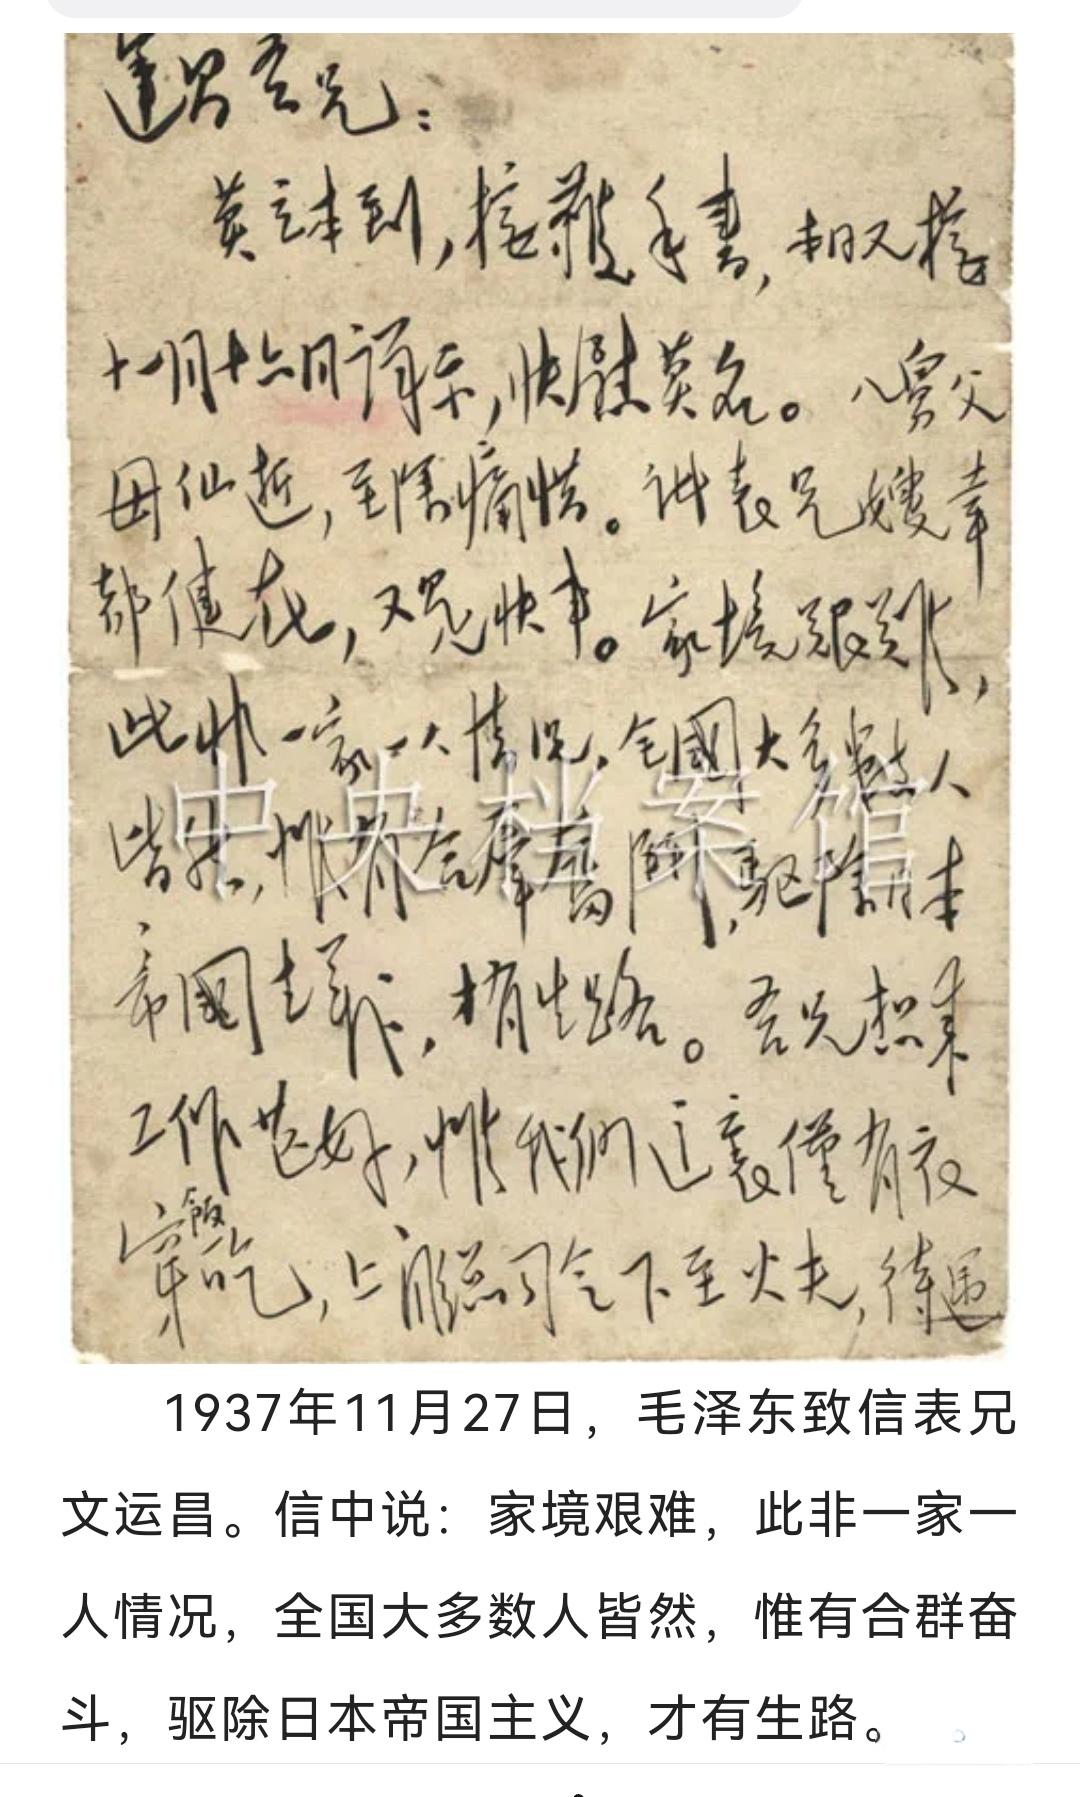 運昌吾兄：
莫立本到，接獲手書，本日又接
十一月十六日詳示，快慰莫名。八舅父
母仙逝，至深痛惜。诸表兄嫂幸
都健在，又是快事。家境艱難，
此非一家一人情况，全國大多數人
皆然，惟有合羣奮鬥，驅除日本
帝國主義，才有生路。吾兄想來
工作甚好，惟我們這裏僅有衣
穿飯吃，上自總司令下至火夫，待遇
中央档案馆
1937年11月27日，毛泽东致信表兄
文运昌。信中说：家境艰难，此非一家一
人情况，全国大多数人皆然，惟有合群奋
斗，驱除日本帝国主义，才有生路。